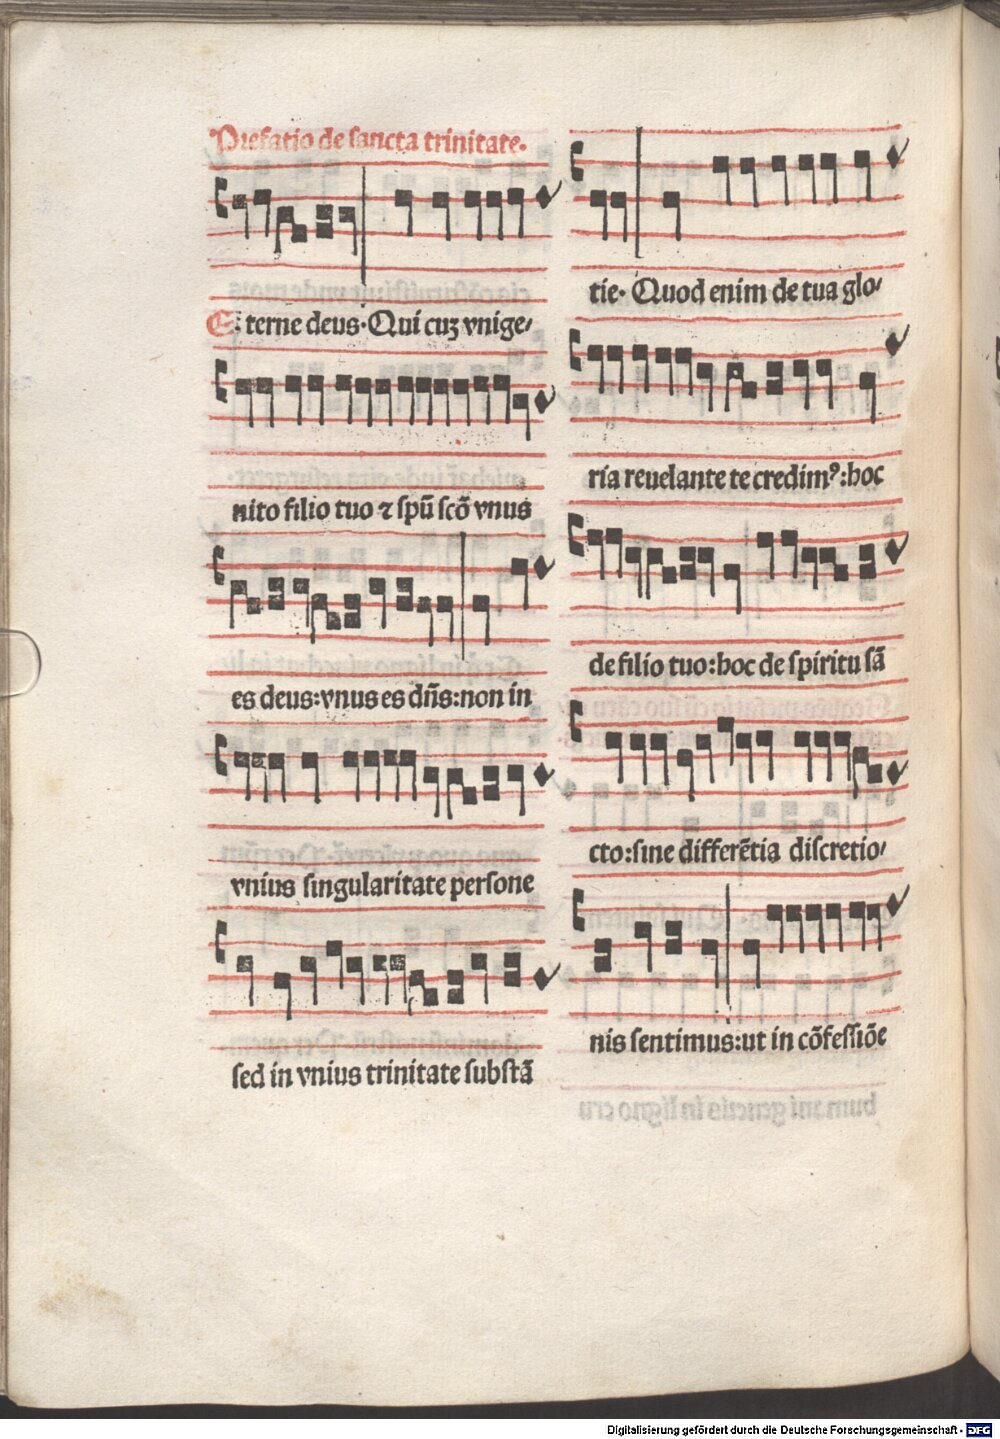 Prefatio de sancta trinitate.
Eterne deus. Qui cuʒ vnige/
nito filio tuo ⁊ spū scō vnus
es deus: vnus es dn̄s: non in
vnius singularitate persone
sed in vnius trinitate substā
tie. Quod enim de tua glo/
ria reuelante te credimꝰ: hoc
de filio tuo: hoc de spiritu sā
cto: sine differētia discretio/
nis sentimus: ut in cōfessiōe
Digitalisierung gefördert durch die Deutsche Forschungsgemeinschaft - DFG